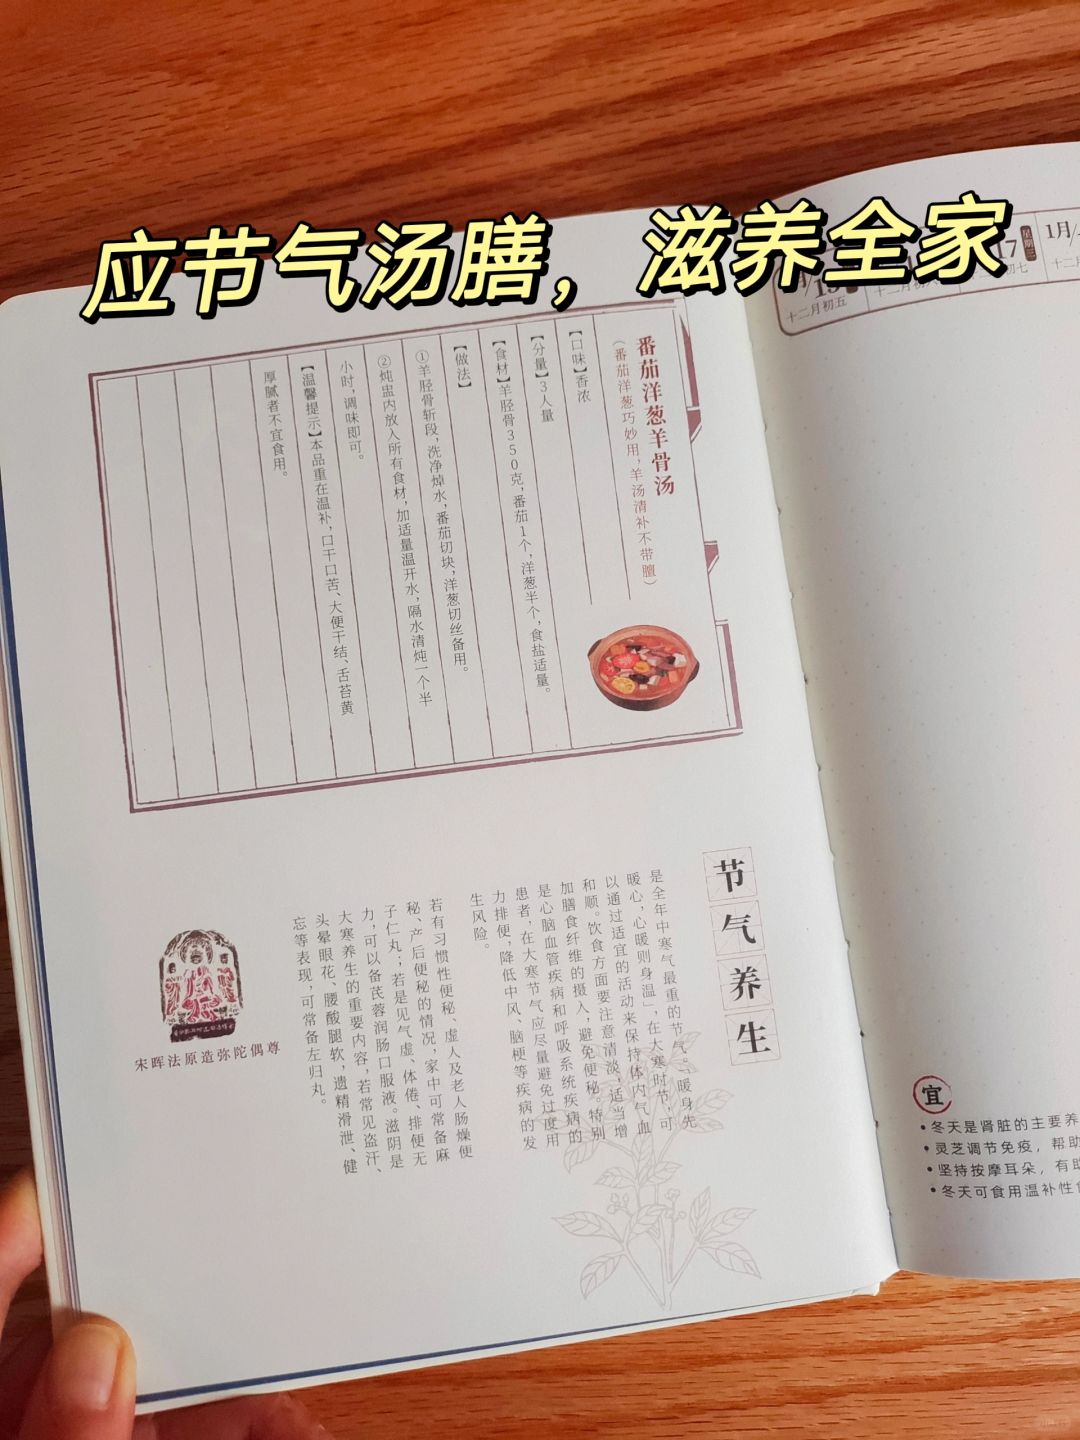 应节气汤膳，滋养全家
番茄洋葱羊骨汤
（番茄洋葱巧妙用，羊汤清补不带膻）
【口味】香浓
【分量】3人量
【食材】羊胫骨350克，番茄1个，洋葱半个，食盐适量。
【做法】
①羊胫骨斩段，洗净焯水，番茄切块，洋葱切丝备用。
②炖盅内放入所有食材，加适量温开水，隔水清炖一个半
小时，调味即可。
【温馨提示】本品重在温补，口干口苦、大便干结、舌苔黄
厚腻者不宜食用。
节气养生
是全年中寒气最重的节气。“暖身先
暖心，心暖则身温”，在大寒时节，可
以通过适宜的活动来保持体内气血
和顺。饮食方面要注意清淡，适当增
加膳食纤维的摄入，避免便秘。特别
是心脑血管疾病和呼吸系统疾病的
患者，在大寒节气应尽量避免过度用
力排便，降低中风、脑梗等疾病的发
生风险。
若有习惯性便秘、虚人及老人肠燥便
秘、产后便秘的情况，家中可常备麻
子仁丸；若是见气虚、体倦、排便无
力，可以备芪蓉润肠口服液。滋阴是
大寒养生的重要内容，若常见盗汗、
头晕眼花、腰酸腿软，遗精滑泄、健
忘等表现，可常备左归丸。
宋晖法原造弥陀偶尊
十二月初五
17
星期三
初七
1月
十二月
宜
•冬天是肾脏的主要养
•灵芝调节免疫，帮助
•坚持按摩耳朵，有助
•冬天可食用温补性食